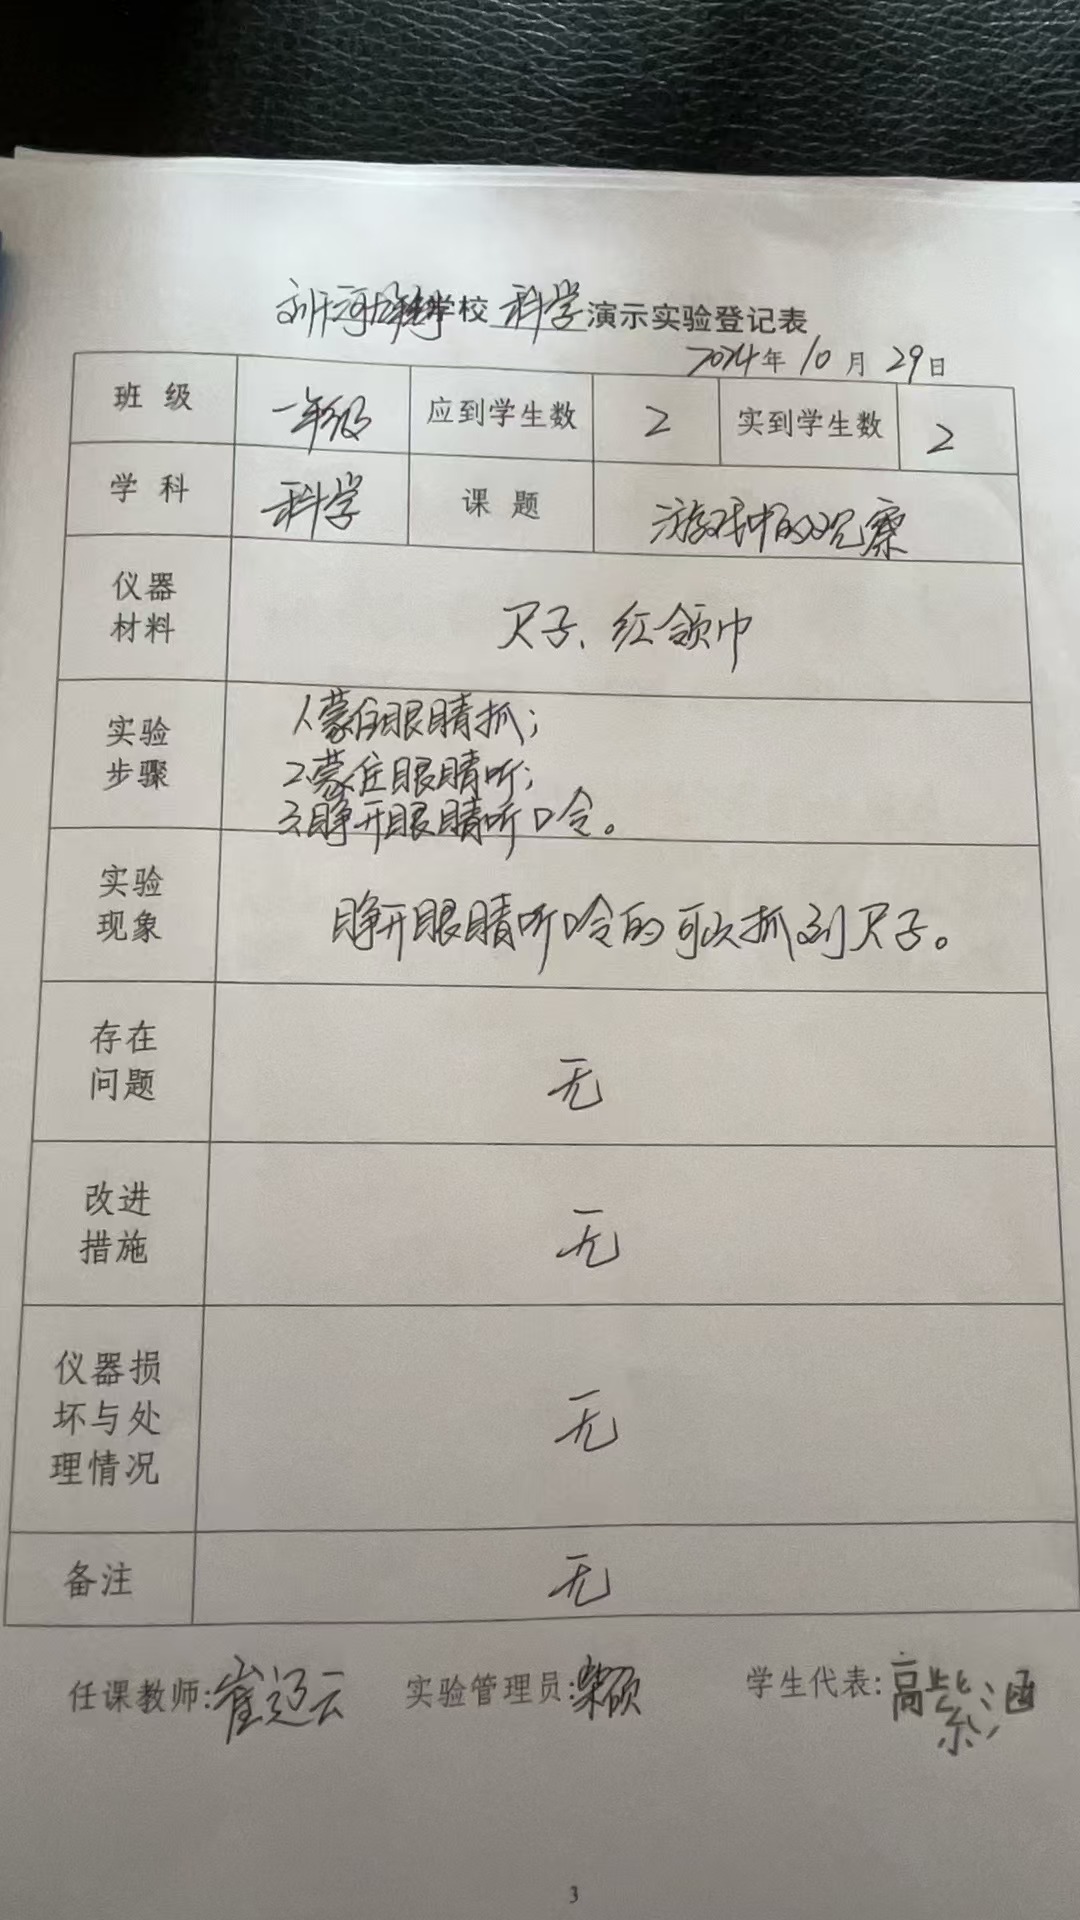 学校 科学 演示实验登记表
2024年 10 月 29 日
班 级 一年级 应到学生数 2 实到学生数 2
学 科 科学 课 题 游戏中的观察
仪器
材料
尺子、红领巾
实验
步骤
1、蒙住眼睛抓；
2蒙住眼睛听；
3睁开眼睛听口令。
实验
现象
睁开眼睛听口令的可以抓到尺子。
存在
问题
无
改进
措施
无
仪器损
坏与处
理情况
无
备注
无
任课教师:崔迎云 实验管理员: 学生代表:高紫涵
3